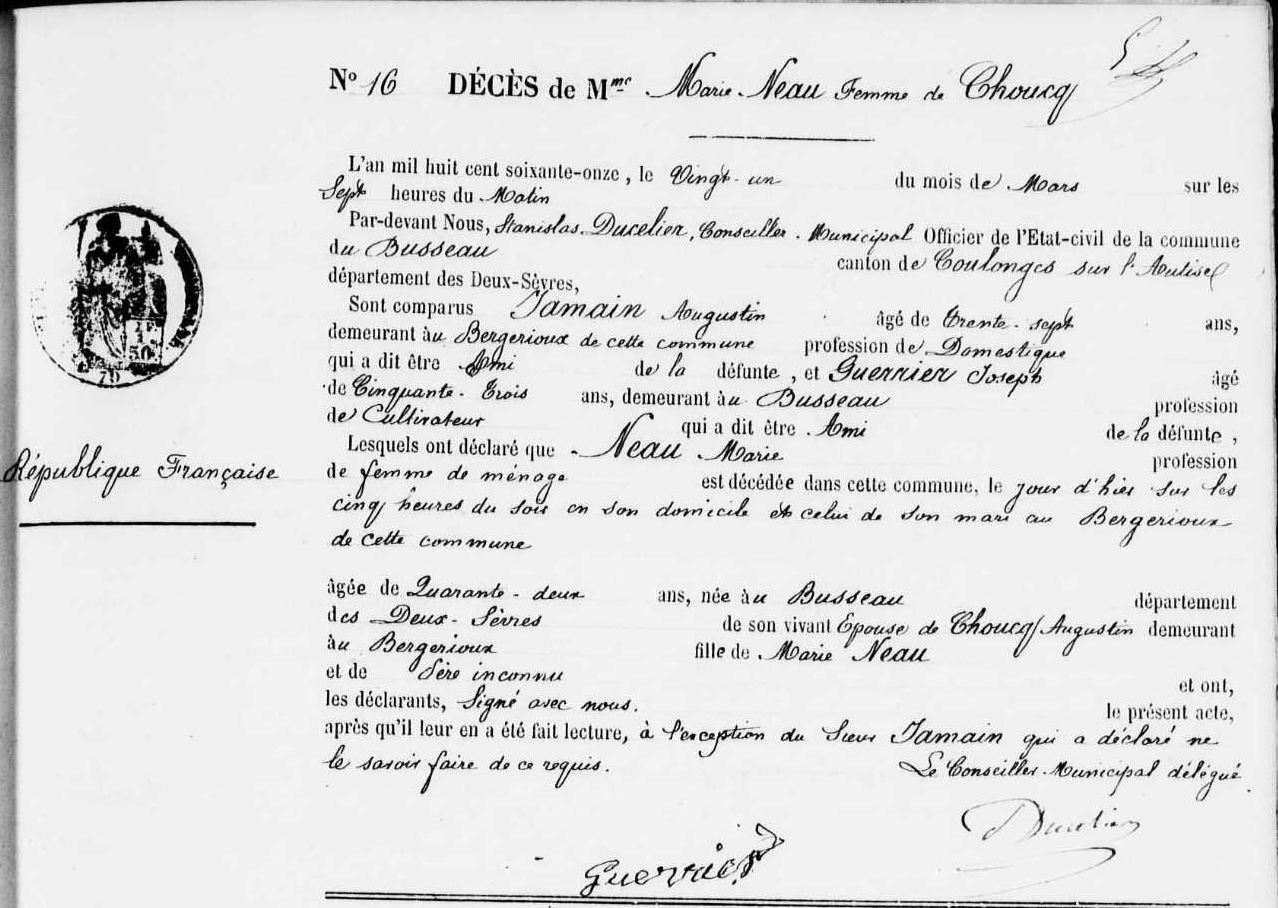 N° 16 DÉCÈS de Mme Marie Neau Femme de Choucq
L'an mil huit cent soixante-onze, le Vingt-un du mois de Mars sur les
Sept heures du Matin
Par-devant Nous, Stanislas Ducelier, Conseiller Municipal Officier de l'Etat-civil de la commune
du Busseau canton de Coulonges sur l'Autise
département des Deux-Sèvres,
Sont comparus Jamain Augustin âgé de Trente-sept ans,
demeurant àu Bergerioux de cette commune profession de Domestique
qui a dit être Ami de la défunte, et Guerrier Joseph âgé
de Cinquante-Trois ans, demeurant àu Busseau profession
de Cultivateur qui a dit être Ami de la défunte,
Lesquels ont déclaré que Neau Marie profession
de femme de ménage est décédée dans cette commune, le jour d'hier sur les
cinq heures du soir en son domicile et celui de son mari au Bergerioux
de cette commune
République Française
âgée de Quarante-deux ans, née àu Busseau département
des Deux-Sèvres de son vivant Epouse de Choucq Augustin demeurant
àu Bergerioux fille de Marie Neau
et de Père inconnu et ont,
les déclarants, Signé avec nous. le présent acte,
après qu'il leur en a été fait lecture, à l'exception du Sieur Jamain qui a déclaré ne
le savoir faire de ce requis. Le Conseiller Municipal délégué
Ducelier
Guerrier
79